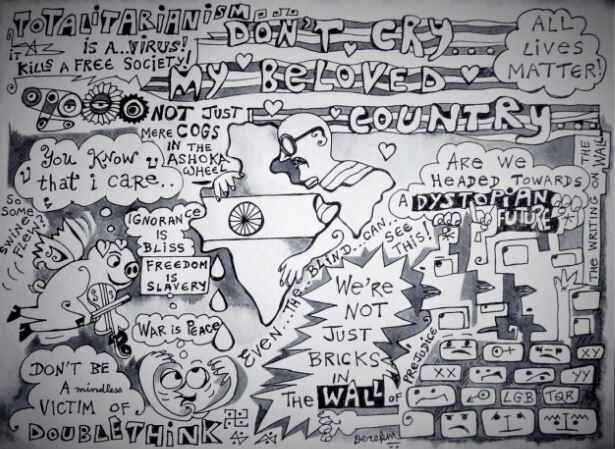 "TOTALITARIANISM"
IT IS A...VIRUS!
KILLS A FREE SOCIETY!
DON'T CRY...
MY BELOVED
COUNTRY
ALL
LIVES
MATTER!
NOT JUST
MERE COGS
IN THE
ASHOKA
WHEEL
You Know
that i care..
SO
SOME
SWINES
FLEW!
IGNORANce
IS
BLISS
FREEDOM
IS
SLAVERY
WAR is PEACe
DON'T BE
A mindless
VICTIM OF
DOUBLETHINK
EVEN...THE...BLIND...CAN...
SEE
THIS!
ARE WE
HEADED TOWARDS
A DYSTOPIAN
FUTURE
THE WRITING ON THE WALL
We're
NOT
JUST
BRICKS
IN
THE WALL OF
PREJUDICE
XY
XX
YY
LGB
TQR
Derekm